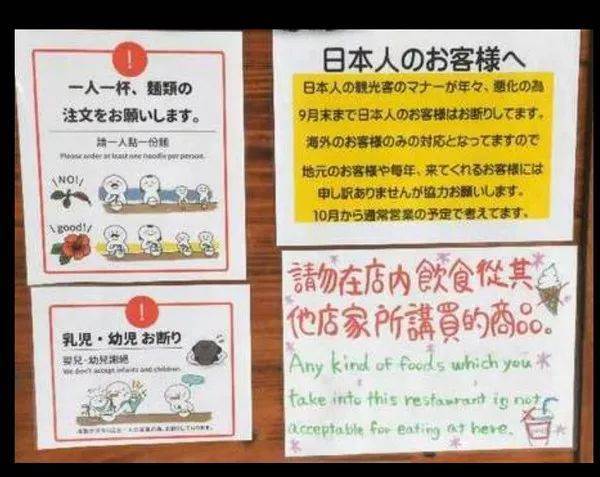 一人一杯、麺類の
注文をお願いします。
請一人點一份麵
Please order at least one noodle per person.
NO!
good!
日本人のお客様へ
日本人の観光客のマナーが年々、悪化の為
9月末まで日本人のお客様はお断りしてます。
海外のお客様のみの対応となってますので
地元のお客様や毎年、来てくれるお客様には
申し訳ありませんが協力お願いします。
10月から通常営業の予定で考えてます。
乳児・幼児 お断り
嬰兒·幼兒謝絕
We don't accept infants and children.
請勿在店内飲食從其
他店家所講買的商品。
Any kind of foods which you
take into this restaurant is not
acceptable for eating at here.